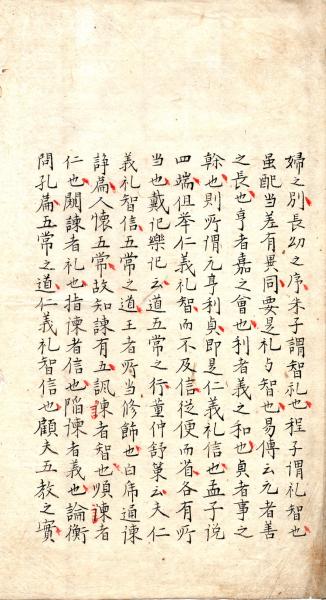 婦之別長幼之序朱子謂智礼也程子謂礼智也
虽配当差有異同要是礼与智也易傳云元者善
之長也亨者嘉之會也利者義之和也貞者事之
幹也則所謂元亨利貞即是仁義礼信也孟子説
四端但举仁義礼智而不及信従便而省各有所
当也戴记樂记云道五常之行董仲舒策云夫仁
義礼智信五常之道王者所当修飾也白虎通諫
諍篇人懷五常故知諫有五諷諫者智也順諫者
仁也闚諫者礼也指諫者信也陷諫者義也論衡
問孔篇五常之道仁義礼智信也顧夫五教之實